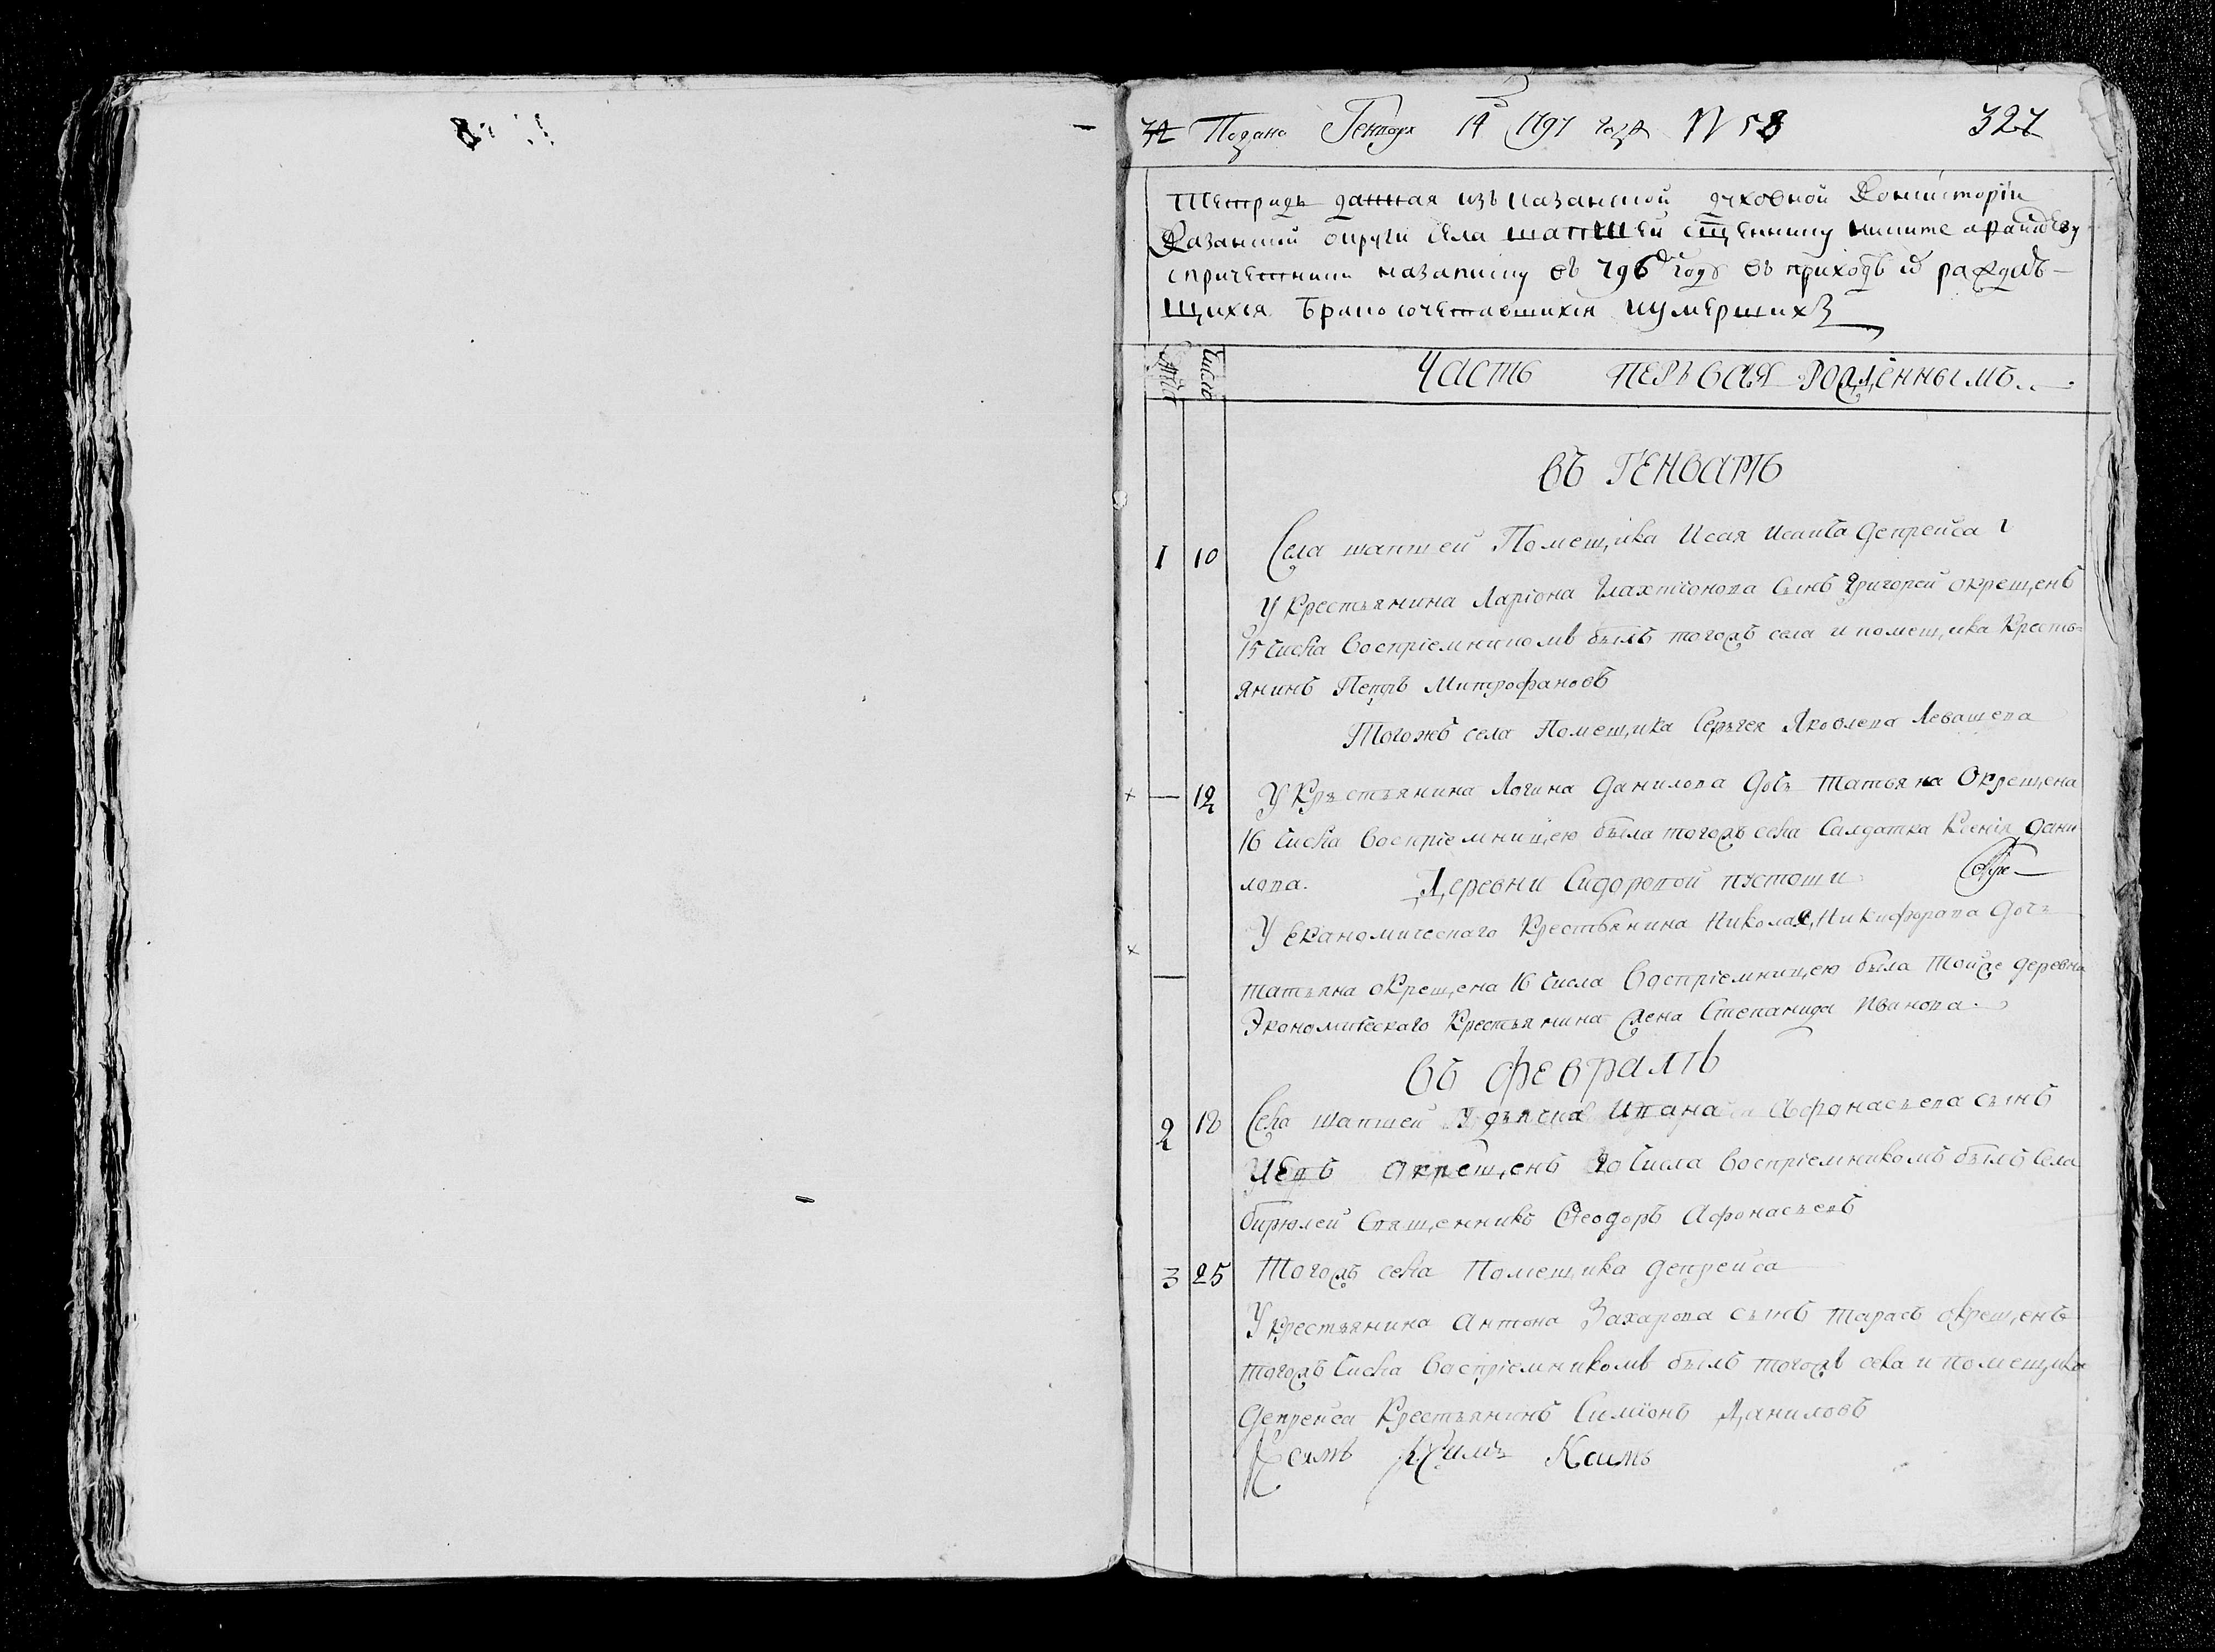 Подано Генваря 14 1797 года N 58 327
Тетрадь данная изъ казанской духовной Консисторіи
Казанской округи села шапшей Сщеннику Никите
спричетники назаписку въ 796 годѣ въ приходѣ ихъ раждае-
щихся бракосочетавшихся иумершихъ
Числа
Часть перьвая рожденнымъ.
въ Генварѣ
1 10 Села шапшей Помещика Исая Исаива Депрейса
У Крестьянина Ларіона Галахтіонова сынъ Григорей окрещенъ
15 Числа Воспріемникомъ былъ тогожъ села и помещика Кресть=
янинъ Петръ Митрофановъ
Тогожъ села Помещика Серьгея Яковлева Левашева
— 12 У Крестьянина Логина Данилова Дочь Татьяна Окрещена
16 Числа Воспріемницею была тогожъ села Салдатка Ксенія Дани
лова. Деревни Сидоровой пустоши
У Економическаго Крестьянина Николая Никифорава Дочь
— татьяна окрещена 16 Числа Воспріемницею была Тойже деревни
Экономическаго Крестьянина жена Степанида Иванова.
въ Февралѣ
2 18 Села шапшей У дьячка Ивана Афонасьева сынъ
окрещенъ 20 Числа Воспріемникомъ былъ Села
бирюлей Священникъ Феодоръ Афонасьевъ
3 25 Тогожъ села Помещика Депрейса
У крестьянина Антона Захарова сынъ Тарасъ окрещенъ
тогожъ Числа Воспріемникомъ былъ тогожъ села и помещика
Депрейса Крестьянинъ Симіонъ Даниловъ